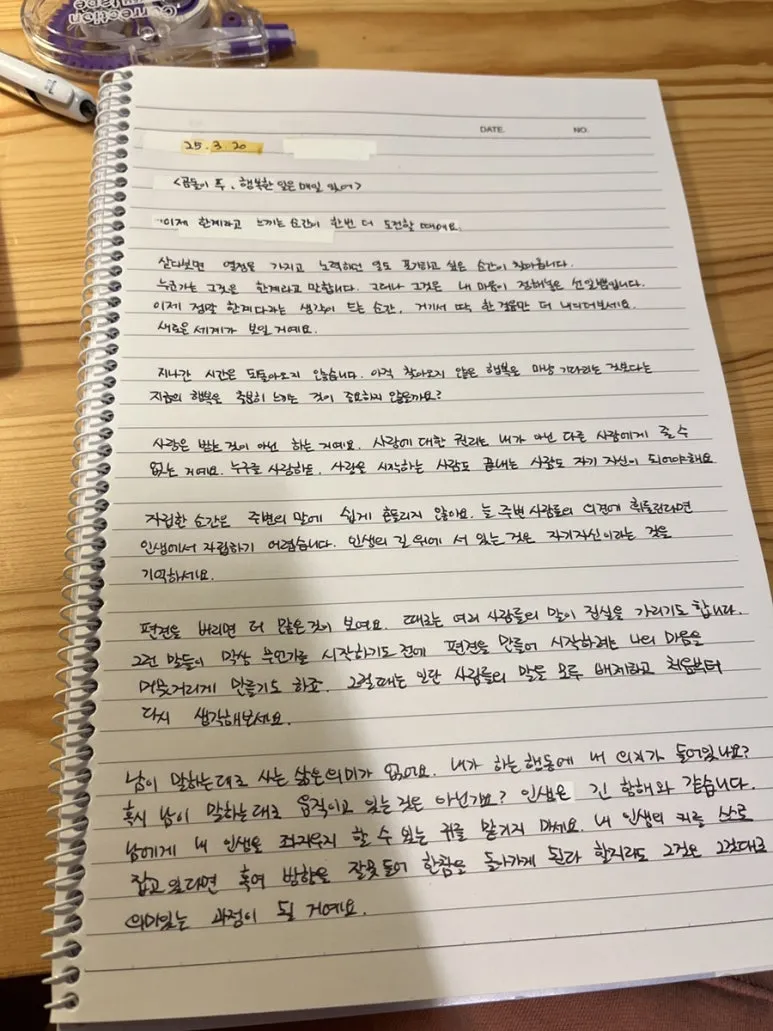 Correction
tape
DATE.
NO.
25. 3. 20
<곰돌이 푸, 행복한 일은 매일 있어>
이제 한계라고 느끼는 순간이 한번 더 도전할 때예요.
살다보면 열정을 가지고 노력하던 일도 포기하고 싶은 순간이 찾아옵니다.
누군가는 그것을 한계라고 말합니다. 그러나 그것은 내 마음이 정해놓은 선일뿐입니다.
이제 정말 한계다라는 생각이 드는 순간, 거기서 딱 한 걸음만 더 내디뎌보세요.
새로운 세계가 보일 거예요.
지나간 시간은 되돌아오지 않습니다. 아직 찾아오지 않은 행복을 마냥 기다리는 것보다는
지금의 행복을 충분히 느끼는 것이 중요하지 않을까요?
사랑은 받는 것이 아닌 하는 거예요. 사랑에 대한 권리는 내가 아닌 다른 사람에게 줄 수
없는 거예요. 누구를 사랑하든, 사랑을 시작하는 사람도 끝내는 사람도 자기 자신이 되어야해요
자립한 순간은 주변의 말에 쉽게 흔들리지 않아요. 늘 주변 사람들의 의견에 휘둘린다면
인생에서 자립하기 어렵습니다. 인생의 길 위에 서 있는 것은 자기자신이라는 것을
기억하세요.
편견을 버리면 더 많은 것이 보여요. 때로는 여러 사람들의 말이 진실을 가리기도 합니다.
그런 말들이 막상 무언가를 시작하기도 전에 편견을 만들어 시작하려는 나의 마음을
머뭇거리게 만들기도 하죠. 그럴때는 일단 사람들의 말을 모두 배제하고 처음부터
다시 생각해보세요.
남이 말하는대로 사는 삶은 의미가 없어요. 내가 하는 행동에 내 의지가 들어있나요?
혹시 남이 말하는대로 움직이고 있는 것은 아닌가요? 인생은 긴 항해와 같습니다.
남에게 내 인생을 좌지우지 할 수 있는 키를 맡기지 마세요. 내 인생의 키를 스스로
잡고 있다면 혹여 방향을 잘못 들어 한참을 돌아가게 된다 할지라도 그것은 그것대로
의미있는 과정이 될 거예요.